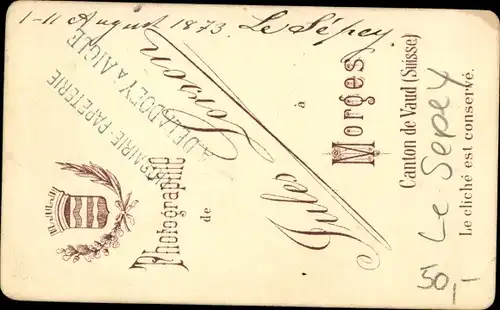 1-11 August 1873. Le Sépey.
LIBRAIRIE PAPETERIE
A. DELADOEY A AIGLE
Photographie
de
Jules
à
Morges
Canton de Vaud (Suisse)
Le cliché est conservé.
Le Sepey
50.-